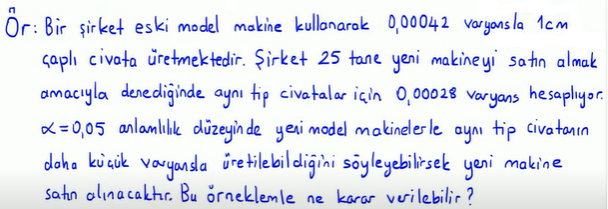 Ör: Bir şirket eski model makine kullanarak 0,00042 varyansla 1cm
çaplı civata üretmektedir. Şirket 25 tane yeni makineyi satın almak
amacıyla denediğinde aynı tip civatalar için 0,00028 varyans hesaplıyor.
α=0,05 anlamlılık düzeyinde yeni model makinelerle aynı tip civatanın
daha küçük varyansla üretilebildiğini söyleyebilirsek yeni makine
satın alınacaktır. Bu örneklemle ne karar verilebilir?